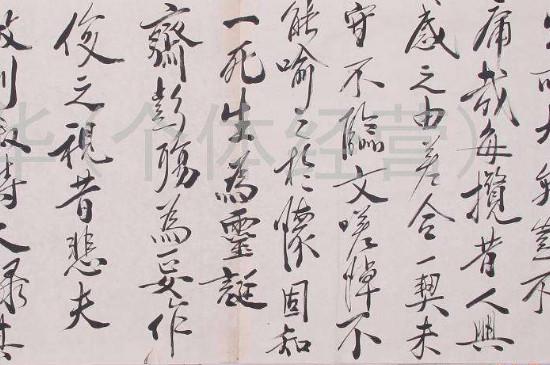 生亦大矣豈不
痛哉每攬昔人興
感之由若合一契未
嘗不臨文嗟悼不
能喻之於懷固知
一死生為虛誕
齊彭殤為妄作
後之視昔悲夫
故列敘時人錄其
华（个体经营）